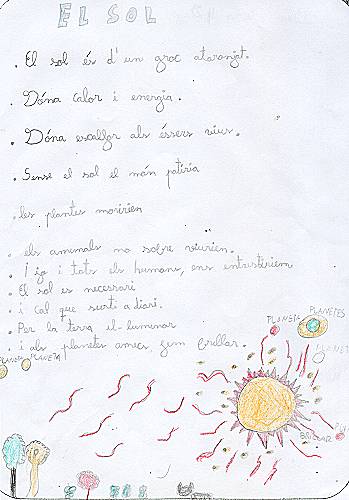 EL SOL
. El sol és d'un groc ataronjat.
. Dóna calor i energia.
. Dóna escalfor als éssers vius.
. Sense el sol el món patiria
. les plantes moririen
. els animals no sobreviurien.
. I jo i tots els humans, ens entristiriem
. El sol es necessari
. i cal que surti a diari.
. Per la terra il-luminar
. i als planetes amics fem brillar.
PLANETES
PLANETA
PLANETA
PLANETA PLANETA
BRILLAR